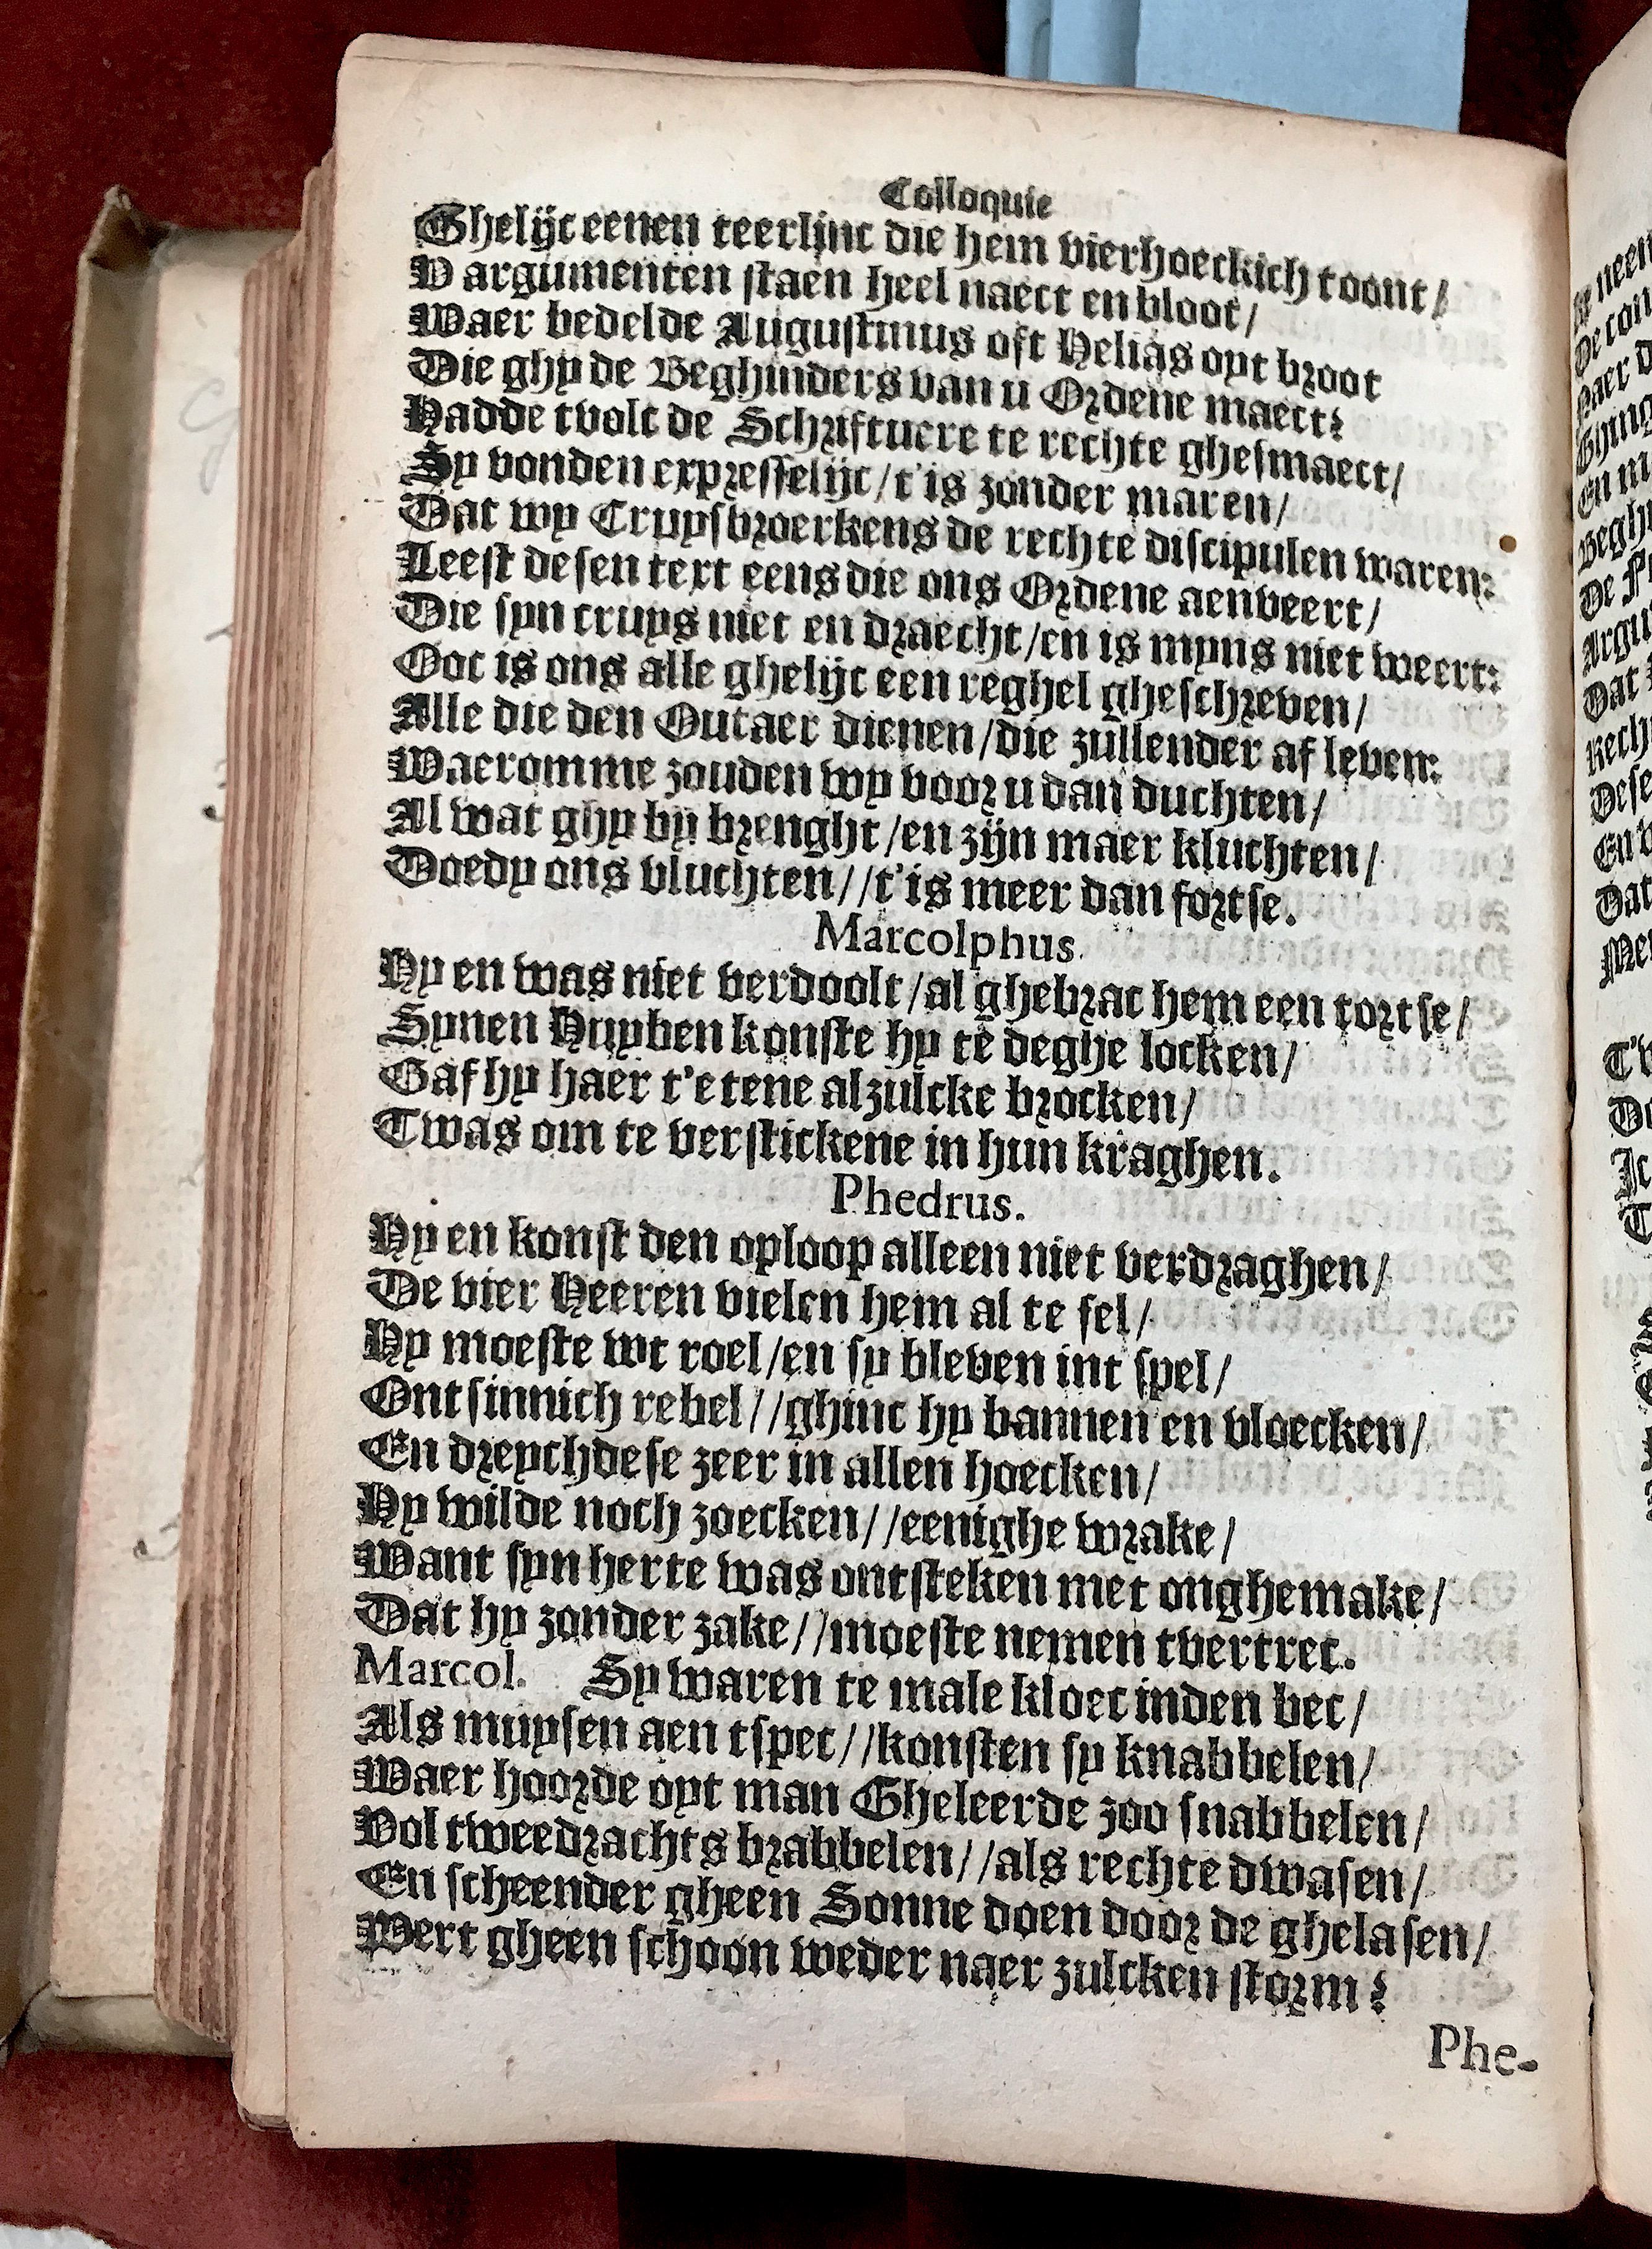 Colloquie
Ghelijc eenen teerlinc die hem vierhoeckich toont/
V argumenten staen heel naect en bloot/
Waer bedelde Augustinus oft Helias oyt broot
Die ghy de Beghinders van u Ordene maect?
Hadde tvolc de Schriftuere te rechte ghesmaect/
Sy vonden expresselijc/t'is zonder maren/
Dat wy Cruysbroerkens de rechte discipulen waren:
Leest desen text eens die ons Ordene aenveert/
Die syn cruys niet en draecht/en is myns niet weert:
Ooc is ons alle ghelijc een reghel gheschreven/
Alle die den Outaer dienen/die zullender af leven:
Waeromme zouden wy voor u dan duchten/
Al wat ghy by brenght/en zijn maer kluchten/
Doedy ons vluchten//t'is meer dan fortse.
Marcolphus.
Hy en was niet verdoolt/al ghebrac hem een tortse/
Synen Huyben konste hy te deghe locken/
Gaf hy haer t'etene alzulcke brocken/
Twas om te verstickene in hun kraghen.
Phedrus.
Hy en konst den oploop alleen niet verdraghen/
De vier Heeren vielen hem al te fel/
Hy moeste wt roel/en sy bleven int spel/
Ontsinnich rebel//ghinc hy bannen en vloecken/
En dreychdese zeer in allen hoecken/
Hy wilde noch zoecken//eenighe wrake/
Want syn herte was ontsteken met onghemake/
Dat hy zonder zake//moeste nemen tvertrec.
Marcol. Sy waren te male kloec inden bec/
Als muysen aen tspec//konsten sy knabbelen/
Waer hoorde oyt man Gheleerde zoo snabbelen/
Vol tweedrachts brabbelen//als rechte dwasen/
En scheender gheen Sonne doen door de ghelasen/
Wert gheen schoon weder naer zulcken storm?
Phe-